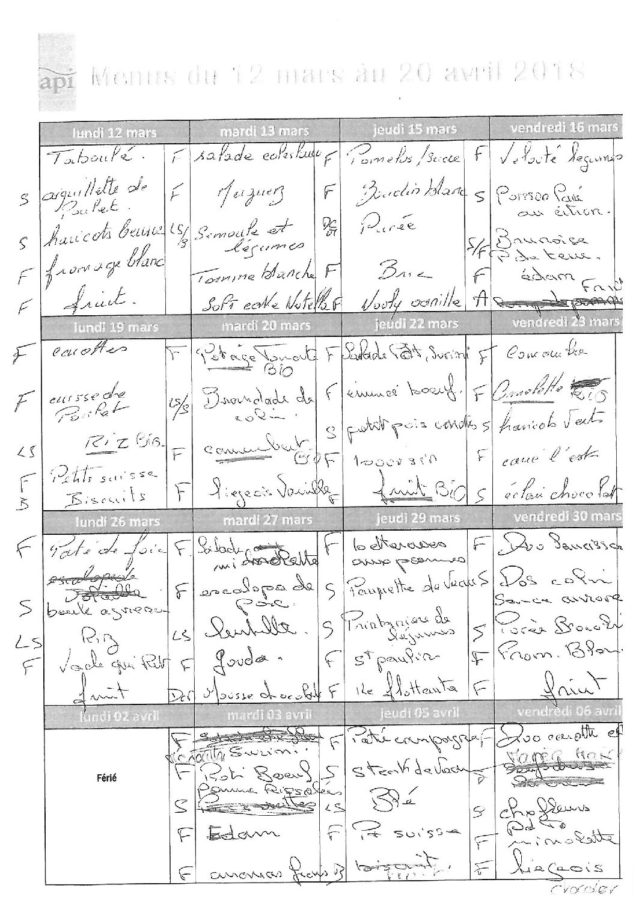 api Menus du 12 mars au 20 avril 2018
lundi 12 mars
Taboulé. F
S aiguillette de Poulet.
S haricots beurre
F fromage blanc
F fruit.
mardi 13 mars
salade F
F Merguez
LS/S Semoule et légumes
Tomme blanche F
F
jeudi 15 mars
Pomelos/sucre F
F Boudin blanc
Purée
Brie
vanille
vendredi 16 mars
Velouté légumes
S Poisson Pané au citron.
S/F Brunoise P. de terre.
F édam
A Fruit
lundi 19 mars
F carottes
F cuisse de Poulet
LS Riz Bio
F Petits suisse
B Biscuits
mardi 20 mars
F Potage Tomate BIO
LS/S Brandade de colin.
F camembert BIO
F liegeois Vanille
jeudi 22 mars
F Salade Pdt, Surimi
F émincé boeuf.
S petit pois carottes
F boursin
F fruit BIO
vendredi 23 mars
F Concombre
F Omelette BIO
S haricots verts
F carré l'est
S éclair chocolat
lundi 26 mars
F Paté de foie
S boule agneau
LS Riz
F Vache qui Rit
fruit
mardi 27 mars
F Salade mimolette
F escalope de Porc.
LS lentille.
F Gouda.
Der Mousse chocolat
jeudi 29 mars
F betteraves aux pommes
S Paupiette de Veau
S Printanière de légumes
F St paulin
F ile flottante
vendredi 30 mars
F Duo Saucisson
S Dos colin Sauce aurore
S Purée Brocolis
F From. Blanc
F fruit
lundi 02 avril
Férié
mardi 03 avril
F Surimi.
F Roti Boeuf
S Pomme Rissolées
F Edam
F ananas frais
jeudi 05 avril
F Paté campagne
S steack de Veau
LS Blé
F Pt suisse
B biscuit.
vendredi 06 avril
F Duo carotte et
S choffleurs
F mimolette
F liegeois